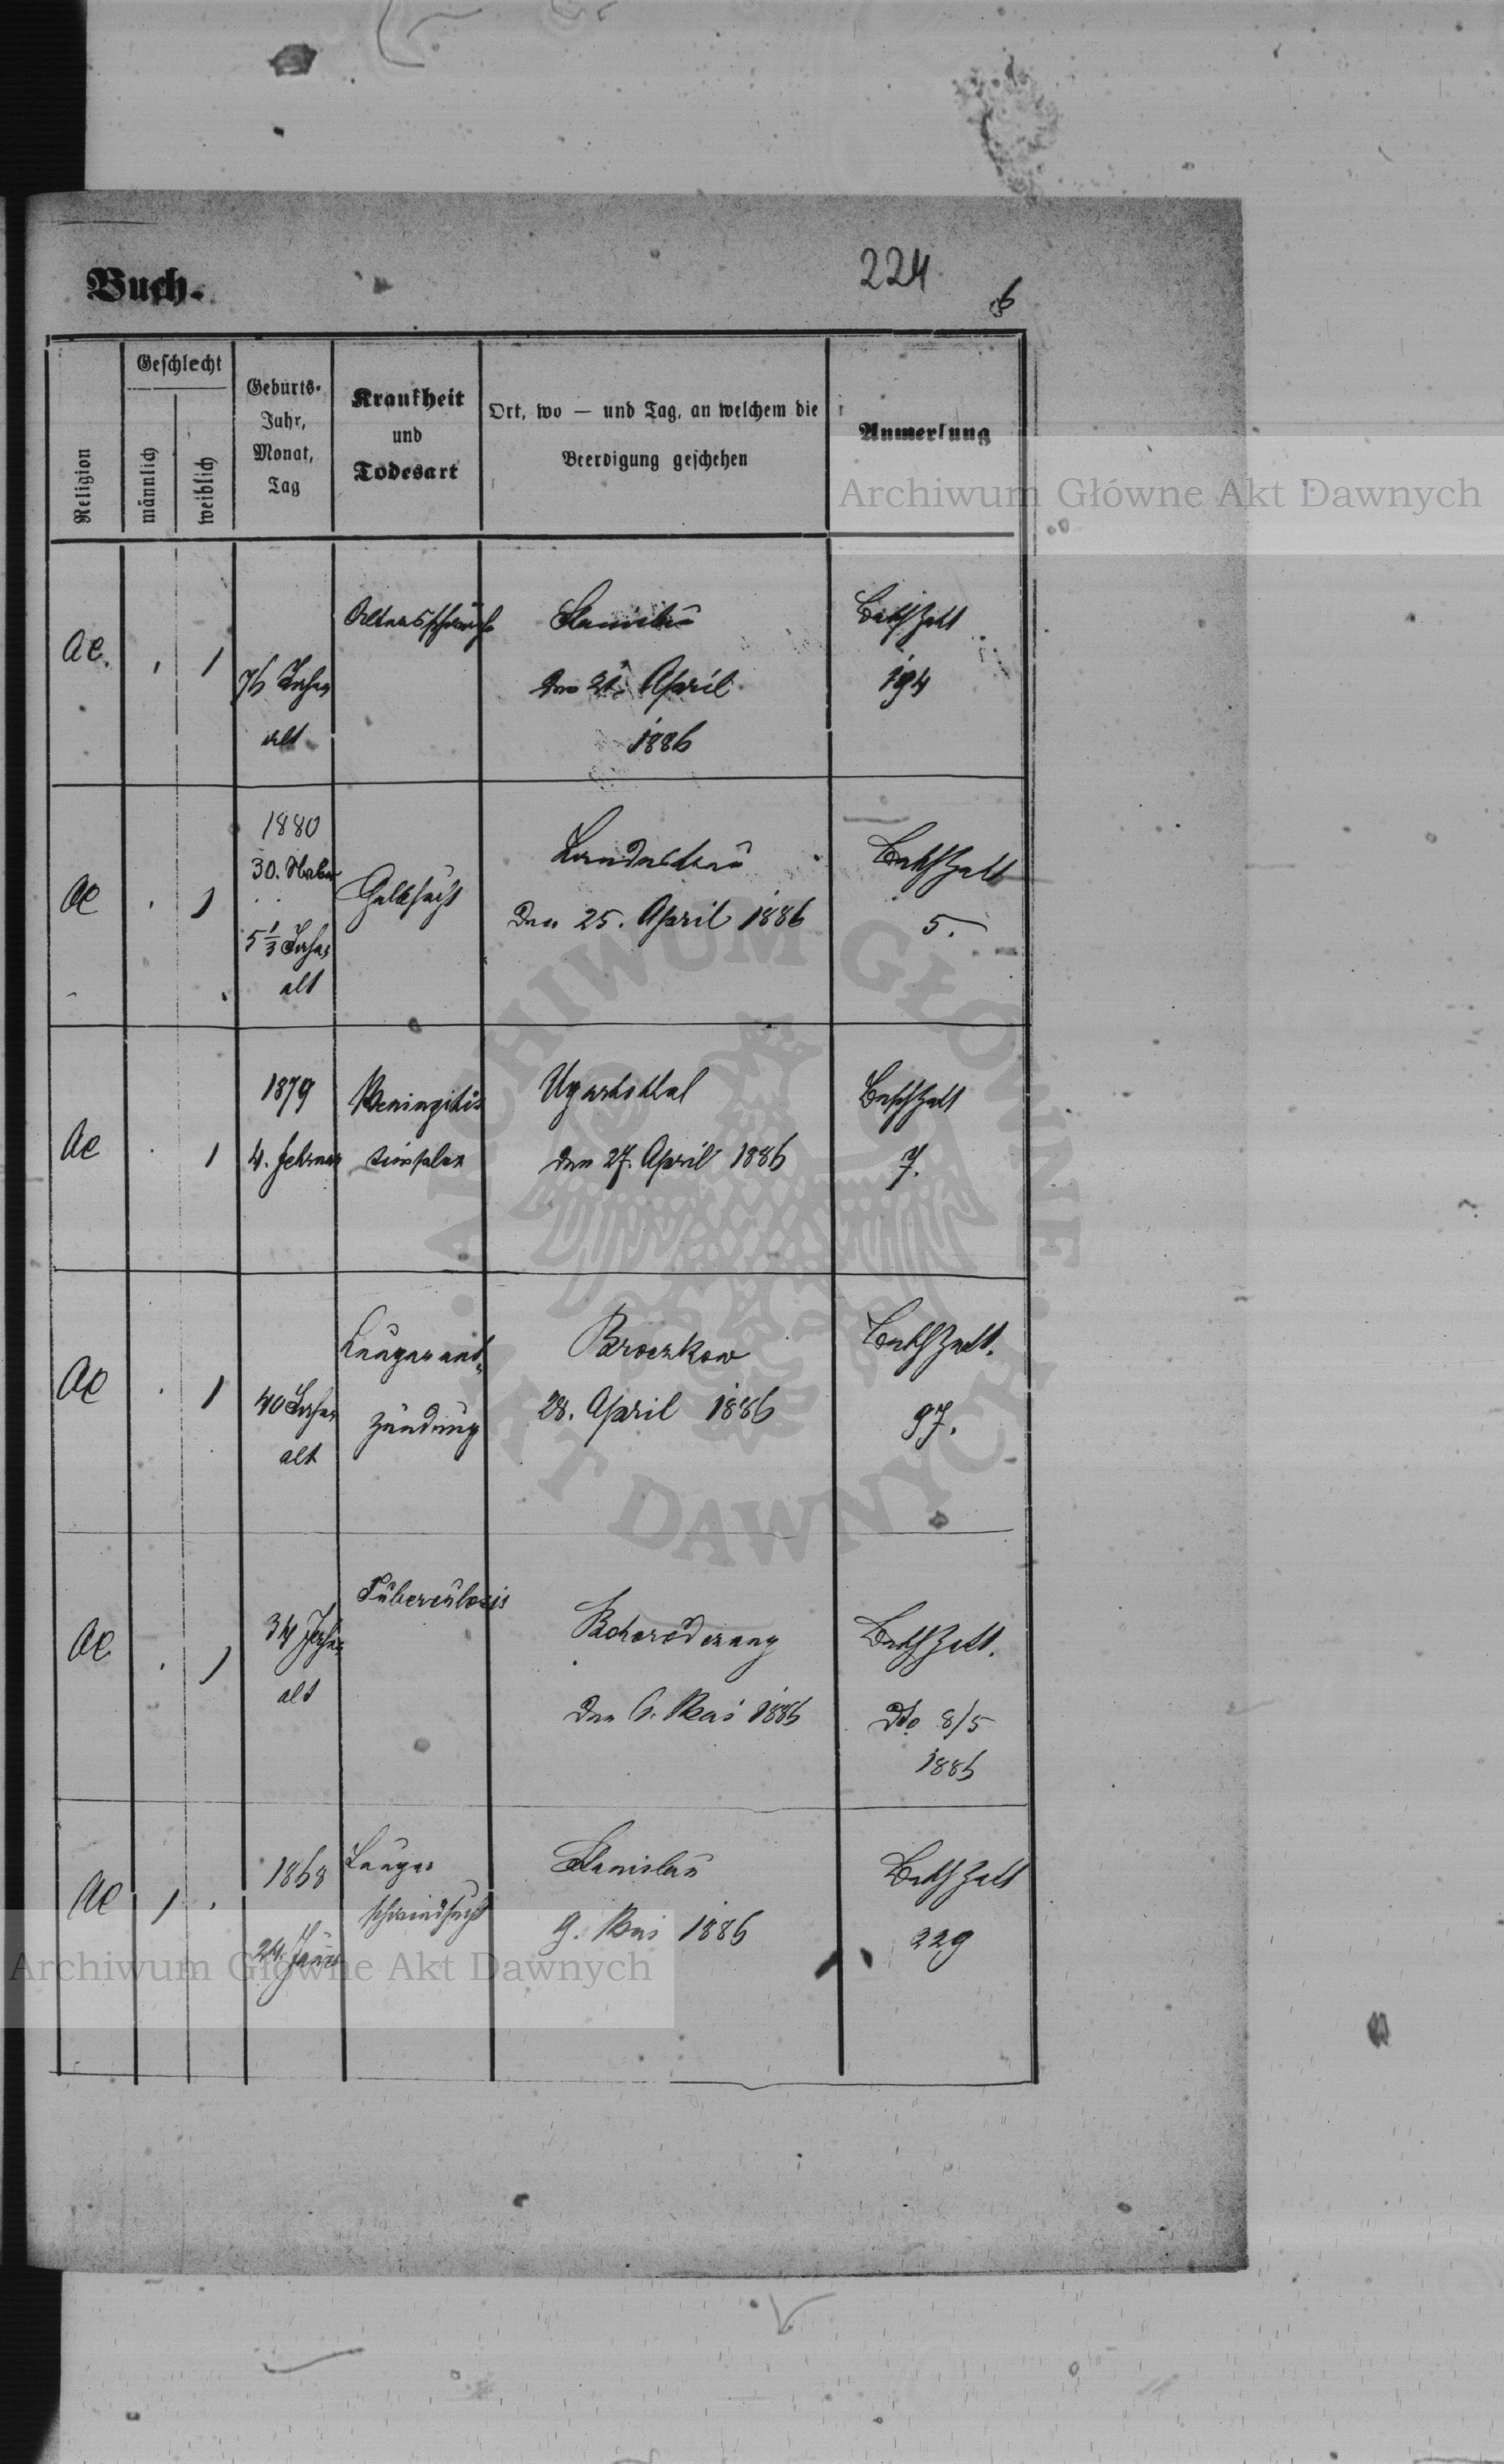 Buch.
224
6
Religion
Geschlecht
männlich
weiblich
Geburts-
Jahr,
Monat,
Tag
Krankheit
und
Todesart
Ort, wo — und Tag, an welchem die
Beerdigung geschehen
Anmerkung
AC.
1
76 Jahre
alt
Altersschwäche
Stanislau
den 21. April
1886
194
AC
1
1880
30.
5 1/3 Jahre
alt
Gelbsucht
Landestreu
den 25. April 1886
5.
AC
1
1879
4. Februar
Meningitis
Ugartsthal
den 27. April 1886
7.
AC
1
40 Jahre
alt
Lungenent-
zündung
Broczkow
28. April 1886
97.
AC
1
34 Jahre
alt
Tuberculosis
den 6. Mai 1886
dto 8/5
1886
AC
1
1868
24. Jäner
Lungen
schwindsucht
Stanislau
9. Mai 1886
229
Archiwum Główne Akt Dawnych
Archiwum Główne Akt Dawnych
ARCHIWUM GŁÓWNE
AKT DAWNYCH